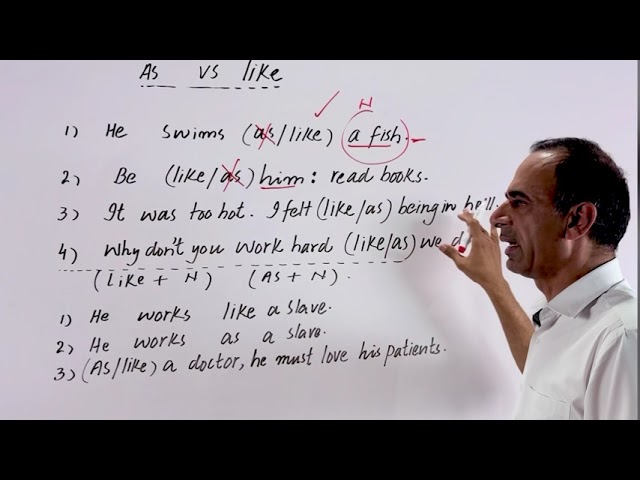 As vs like
N
1) He swims (as/like) a fish.
2) Be (like/as) him: read books.
3) It was too hot. I felt (like/as) being in he'll.
4) Why don't you work hard (like/as) we
(Like + N) (As + N).
1) He works like a slave.
2) He works as a slave.
3) (As/like) a doctor, he must love his patients.